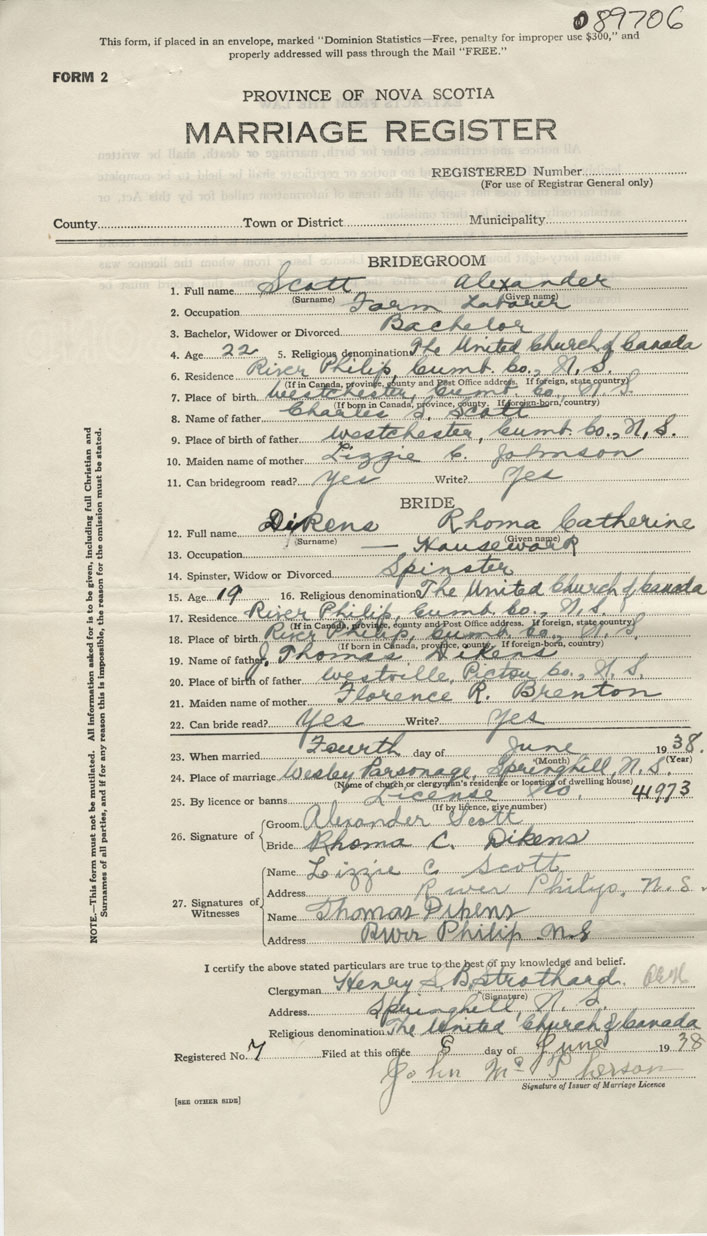 089706
This form, if placed in an envelope, marked "Dominion Statistics—Free, penalty for improper use $300," and
properly addressed will pass through the Mail "FREE."
FORM 2
PROVINCE OF NOVA SCOTIA
MARRIAGE REGISTER
REGISTERED Number
(For use of Registrar General only)
County Town or District Municipality
BRIDEGROOM
1. Full name Scott Alexander
(Surname) (Given name)
2. Occupation Farm Laborer
3. Bachelor, Widower or Divorced Bachelor
4. Age 22 5. Religious denomination The United Church of Canada
6. Residence River Philip, Cumb. Co., N. S.
(If in Canada, province, county and Post Office address. If foreign, state country)
7. Place of birth Westchester, Cumb. Co., N. S.
(If born in Canada, province, county. If foreign-born, country)
8. Name of father Charles S. Scott
9. Place of birth of father Westchester, Cumb. Co., N. S.
10. Maiden name of mother Lizzie C. Johnson
11. Can bridegroom read? Yes Write? Yes
BRIDE
12. Full name Dikens Rhoma Catherine
(Surname) (Given name)
13. Occupation — Housework
14. Spinster, Widow or Divorced Spinster
15. Age 19 16. Religious denomination The United Church of Canada
17. Residence River Philip, Cumb. Co., N. S.
(If in Canada, province, county and Post Office address. If foreign, state country)
18. Place of birth River Philip, Cumb. Co., N. S.
(If born in Canada, province, county. If foreign-born, country)
19. Name of father J. Thomas Dikens
20. Place of birth of father Westville, Pictou Co., N. S.
21. Maiden name of mother Florence R. Brenton
22. Can bride read? Yes Write? Yes
23. When married Fourth day of June 1938.
(Month) (Year)
24. Place of marriage Wesley Parsonage, Springhill, N. S.
(Name of church or clergyman's residence or location of dwelling house)
25. By licence or banns License No. 41973
(If by licence, give number)
26. Signature of Groom Alexander Scott
Bride Rhoma C. Dikens
27. Signatures of Witnesses
Name Lizzie C Scott
Address River Philip, N. S.
Name Thomas Dikens
Address River Philip N.S
I certify the above stated particulars are true to the best of my knowledge and belief.
Clergyman Henry S. B. Strothard.
(Signature)
Address Springhill N. S.
Religious denomination The United Church of Canada
Registered No. 7 Filed at this office 8 day of June 1938
John McPherson
Signature of Issuer of Marriage Licence
[SEE OTHER SIDE]
NOTE.—This form must not be mutilated. All information asked for is to be given, including full Christian and
Surnames of all parties, and if for any reason this is impossible, the reason for the omission must be stated.